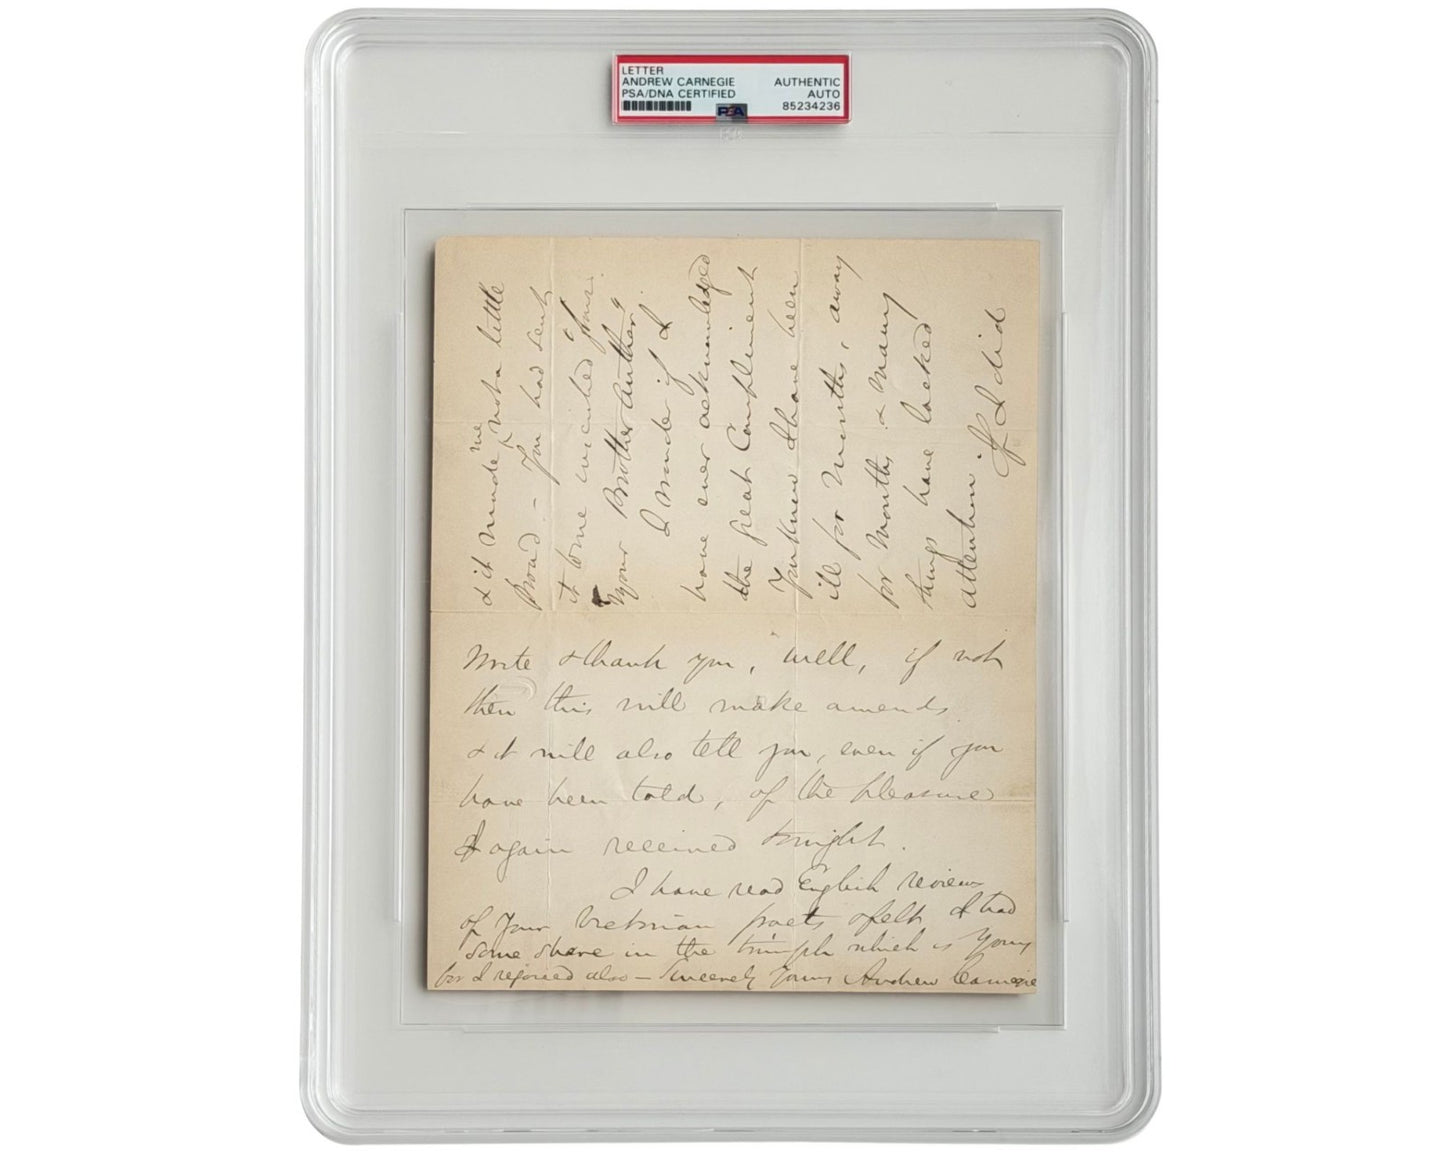 LETTER
ANDREW CARNEGIE AUTHENTIC
PSA/DNA CERTIFIED AUTO
85234236
PSA
& it made me not a little
proud. – You had sent
it to me inscribed
your Brother Author.
I wonder if I
have ever acknowledged
the great Compliment
You know I have been
ill for months, away
for months & many
things have lacked
attention. If I did
Write & thank you, well, if not
then this will make amends
& it will also tell you, even if you
have been told, of the pleasure
I again received tonight.
I have read English reviews
of Your Victorian poets & felt I had
some share in the triumph which is Yours
for I rejoiced also – Sincerely Yours Andrew Carnegie